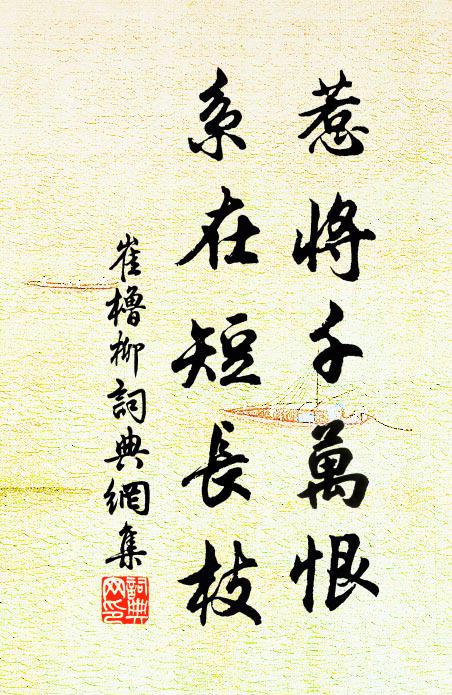 惹將千萬恨
系在短長枝
崔櫓柳詞典網集
詞典網印